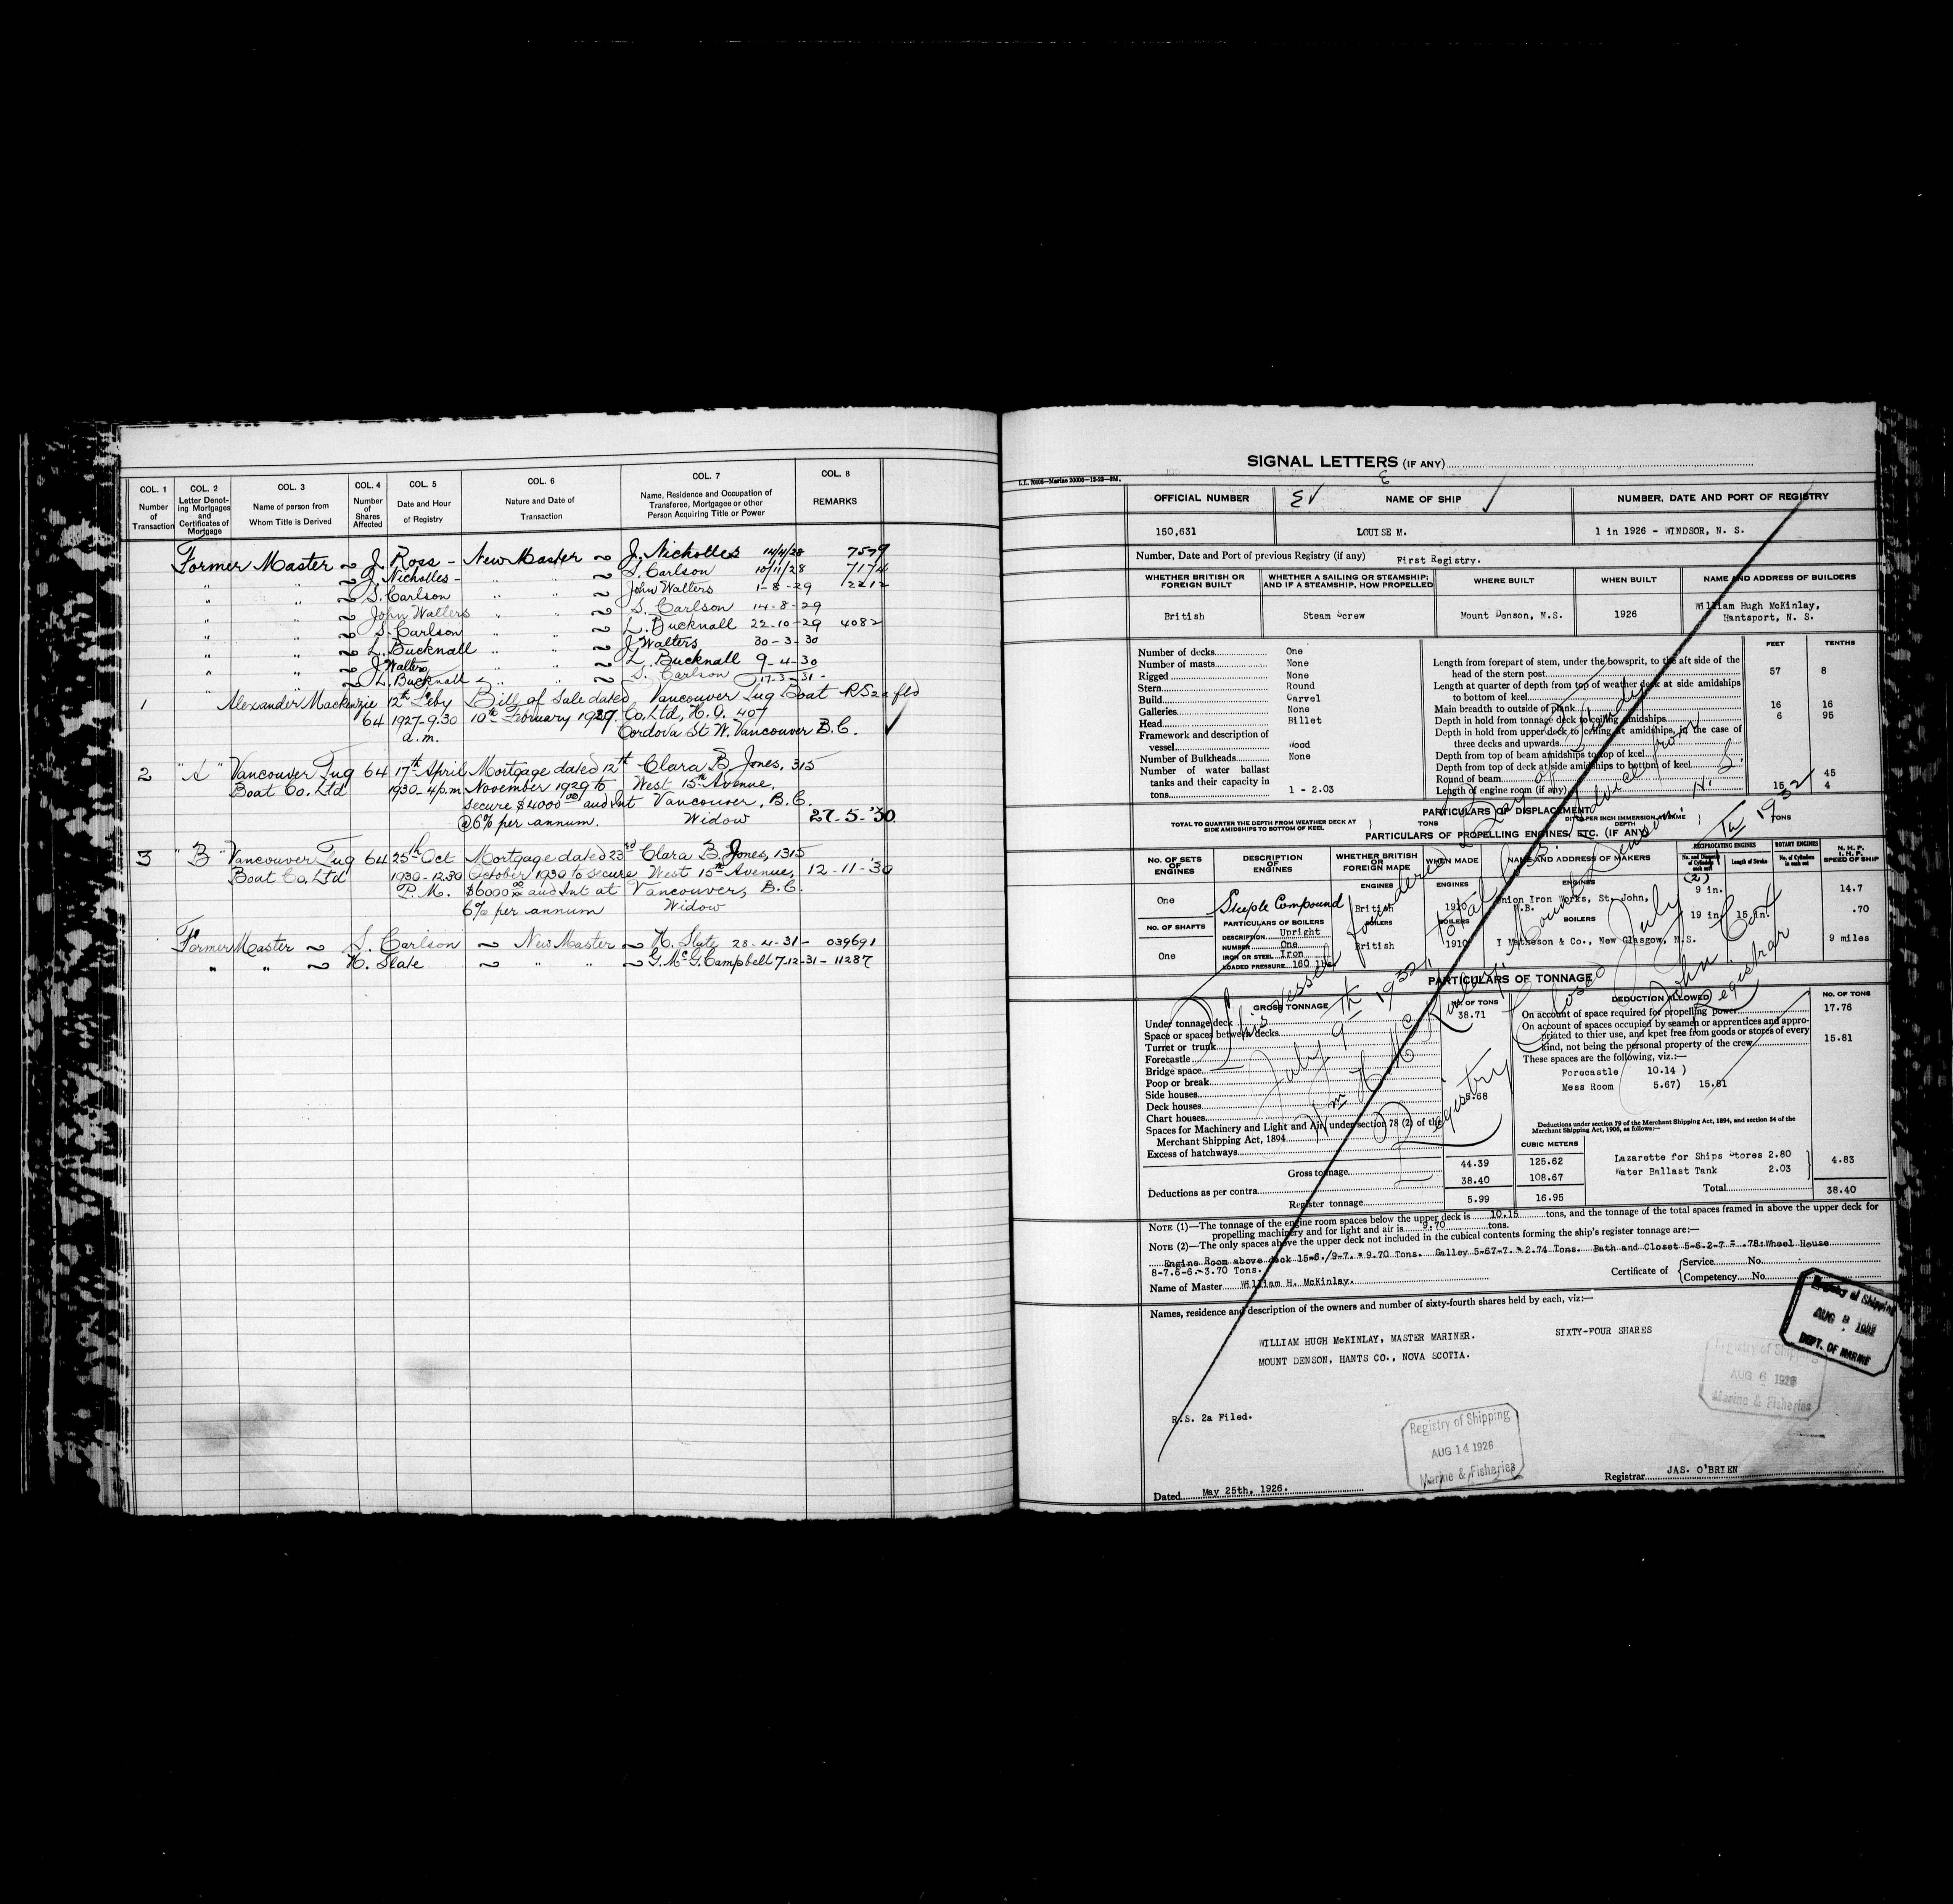 COL. 1 COL. 2 COL. 3 COL. 4 COL. 5 COL. 6 COL. 7 COL. 8
Number of Transaction
Letter Denoting Mortgages and Certificates of Mortgage
Name of person from Whom Title is Derived
Number of Shares Affected
Date and Hour of Registry
Nature and Date of Transaction
Name, Residence and Occupation of Transferee, Mortgagee or other Person Acquiring Title or Power
REMARKS
Former Master ~ J. Ross - New Master ~ J. Nicholles 14/4/28 7579
" " ~ J. Nicholles - " " ~ S. Carlson 10/11/28 7174
" " ~ S. Carlson " " ~ John Walters 1-8-29 2212
" " ~ John Walters " " ~ S. Carlson 14-8-29
" " ~ S. Carlson " " ~ L. Bucknall 22-10-29 4082
" " ~ L. Bucknall " " ~ J. Walters 30-3-30
" " ~ J. Walters " " ~ L. Bucknall 9-4-30
" " ~ L. Bucknall " " ~ S. Carlson 17-3-31-
1 Alexander Mackenzie 12th Feby Bill of Sale dated Vancouver Tug Boat R S 2a fld
64 1927-9.30 10th February 1927. Co. Ltd, H.O. 407
a.m. Cordova St W. Vancouver B.C.
2 "A" Vancouver Tug 64 17th April Mortgage dated 12th Clara B Jones, 315
Boat Co. Ltd 1930-4p.m November 1929 to West 15th Avenue,
secure $4000 00 and Int Vancouver, B.C.
@6% per annum. Widow 27-5-'30
3 "B" Vancouver Tug 64 25th Oct Mortgage dated 23rd Clara B. Jones, 1315
Boat Co. Ltd 1930-12.30 October 1930 to secure West 15th Avenue, 12-11-'30
P.M. $6000 00 and Int at Vancouver, B.C.
6% per annum Widow
Former Master ~ S. Carlson ~ New Master ~ H. Slate 28-4-31- 039691
" " ~ H. Slate ~ " " ~ G. McG. Campbell 7-12-31- 11287
SIGNAL LETTERS (IF ANY)
L.L. 70103—Marine 30006—12-23—2M.
OFFICIAL NUMBER NAME OF SHIP NUMBER, DATE AND PORT OF REGISTRY
150,631 LOUISE M. 1 in 1926 - WINDSOR, N. S.
Number, Date and Port of previous Registry (if any) First Registry.
WHETHER BRITISH OR FOREIGN BUILT
WHETHER A SAILING OR STEAMSHIP; AND IF A STEAMSHIP, HOW PROPELLED
WHERE BUILT
WHEN BUILT
NAME AND ADDRESS OF BUILDERS
British Steam Screw Mount Denson, N.S. 1926 William Hugh McKinlay,
Hantsport, N. S.
FEET TENTHS
Number of decks One
Number of masts None
Rigged None
Stern Round
Build Carvel
Galleries None
Head Billet
Framework and description of
vessel Wood
Number of Bulkheads None
Number of water ballast
tanks and their capacity in
tons 1 - 2.03
Length from forepart of stem, under the bowsprit, to the aft side of the
head of the stern post 57 8
Length at quarter of depth from top of weather deck at side amidships
to bottom of keel
Main breadth to outside of plank 16 16
Depth in hold from tonnage deck to ceiling amidships 6 95
Depth in hold from upper deck to ceiling at amidships, in the case of
three decks and upwards
Depth from top of beam amidships to top of keel
Depth from top of deck at side amidships to bottom of keel
Round of beam 45
Length of engine room (if any) 15 4
PARTICULARS OF DISPLACEMENT
TOTAL TO QUARTER THE DEPTH FROM WEATHER DECK AT SIDE AMIDSHIPS TO BOTTOM OF KEEL TONS
DITTO PER INCH IMMERSION AT SAME DEPTH TONS
PARTICULARS OF PROPELLING ENGINES, ETC. (IF ANY)
NO. OF SETS OF ENGINES
DESCRIPTION OF ENGINES
WHETHER BRITISH OR FOREIGN MADE
WHEN MADE
NAME AND ADDRESS OF MAKERS
RECIPROCATING ENGINES ROTARY ENGINES
N. H. P.
I. H. P.
SPEED OF SHIP
ENGINES ENGINES ENGINES
One Steeple Compound British 1910 Union Iron Works, St. John,
N.B.
(2) 9 in. 14.7
19 in. 15 in. .70
NO. OF SHAFTS PARTICULARS OF BOILERS BOILERS BOILERS BOILERS
DESCRIPTION Upright
NUMBER One British 1910 I Matheson & Co., New Glasgow, N.S. 9 miles
One IRON OR STEEL Iron
LOADED PRESSURE 160 lbs.
PARTICULARS OF TONNAGE
GROSS TONNAGE NO. OF TONS
Under tonnage deck 38.71
Space or spaces between decks
Turret or trunk
Forecastle
Bridge space
Poop or break
Side houses
Deck houses 5.68
Chart houses
Spaces for Machinery and Light and Air, under section 78 (2) of the
Merchant Shipping Act, 1894
Excess of hatchways
CUBIC METERS
Gross tonnage 44.39 125.62
Deductions as per contra 38.40 108.67
Register tonnage 5.99 16.95
DEDUCTION ALLOWED NO. OF TONS
On account of space required for propelling power 17.76
On account of spaces occupied by seamen or apprentices and appro-
priated to thier use, and kpet free from goods or stores of every
kind, not being the personal property of the crew 15.81
These spaces are the following, viz.:—
Forecastle 10.14 )
Mess Room 5.67) 15.81
Deductions under section 79 of the Merchant Shipping Act, 1894, and section 54 of the
Merchant Shipping Act, 1906, as follows:—
Lazarette for Ships Stores 2.80
Water Ballast Tank 2.03 4.83
Total 38.40
This vessel foundered Bay of Fundy
July 9th 1932, total loss. Advice from
Wm H. McKinlay, Mount Denson, N. S.
Registry Closed July 1932
John Cox
Registrar
NOTE (1)—The tonnage of the engine room spaces below the upper deck is 10.15 tons, and the tonnage of the total spaces framed in above the upper deck for
propelling machinery and for light and air is 9.70 tons.
NOTE (2)—The only spaces above the upper deck not included in the cubical contents forming the ship's register tonnage are:—
Engine Room above deck 15-6./9-7. = 9.70 Tons. Galley 5-67-7. = 2.74 Tons. Bath and Closet 5-6.2-7 = .78:Wheel House
8-7.6-6.=3.70 Tons.
Name of Master William H. McKinlay.
Certificate of Service No.
Competency No.
Names, residence and description of the owners and number of sixty-fourth shares held by each, viz:—
WILLIAM HUGH McKINLAY, MASTER MARINER. SIXTY-FOUR SHARES
MOUNT DENSON, HANTS CO., NOVA SCOTIA.
Registry of Shipping
DEPT. OF MARINE
Registry of Shipping
AUG 6
Marine & Fisheries
R.S. 2a Filed.
Registry of Shipping
AUG 14 1926
Marine & Fisheries
Dated May 25th, 1926.
Registrar JAS. O'BRIEN